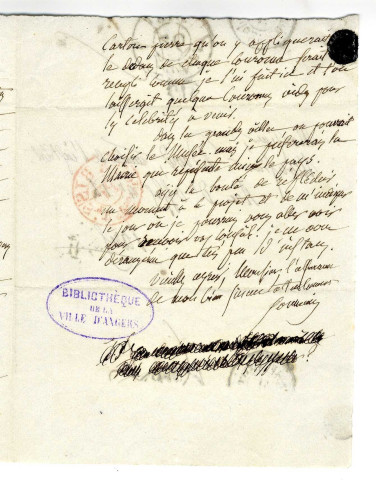 Carton pierre qu'on y appliquerait
le dedans de chaque couronne serait
rempli comme je l'ai fait ici et l'on
laisserait quelques couronnes vides pour
les célébrités à venir.
Dans les grandes villes on pourrait
choisir le Musée mais je préférerais la
Mairie que représente mieux le pays.
ayez la bonté de réfléchir
un moment à ce projet et de m'indiquer
le jour où je pourrai vous aller voir
pour recevoir vos conseils. je ne vous
dérangerai que très peu d'instans.
Veuillez agréer, Monsieur l'assurance
de mes bien sincères
BIBLIOTHÈQUE
DE LA
VILLE D'ANGERS